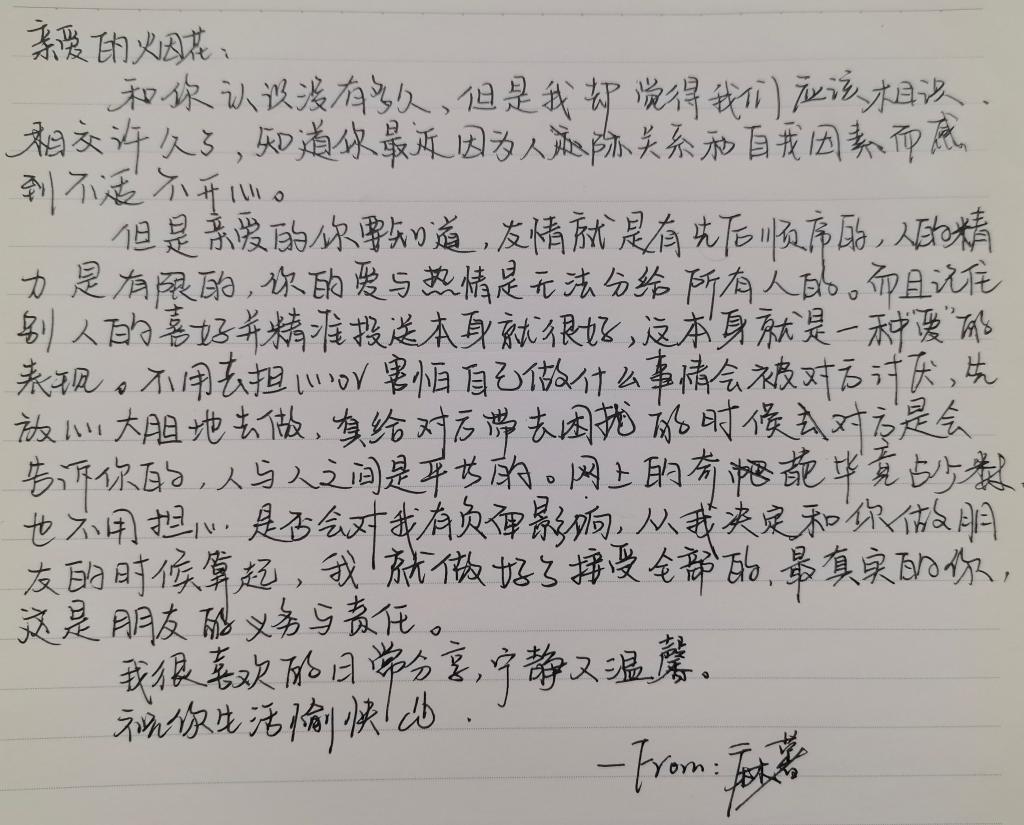 亲爱的烟花：
和你认识没有多久，但是我却觉得我们应该相识
相交许久了，知道你最近因为人际关系和自我因素而感
到不适不开心。
但是亲爱的你要知道，友情就是有先后顺序的，人的精
力是有限的，你的爱与热情是无法分给所有人的。而且记住
别人的喜好并精准投送本身就很好，这本身就是一种“爱”的
表现。不用去担心or害怕自己做什么事情会被对方讨厌，先
放心大胆地去做，真给对方带去困扰的时候对方是会
告诉你的，人与人之间是平共的。网上的奇葩毕竟占少数，
也不用担心是否会对我有负面影响，从我决定和你做朋
友的时候算起，我就做好了接受全部的，最真实的你，
这是朋友的义务与责任。
我很喜欢的日常分享，宁静又温馨。
祝你生活愉快
—From：麻薯